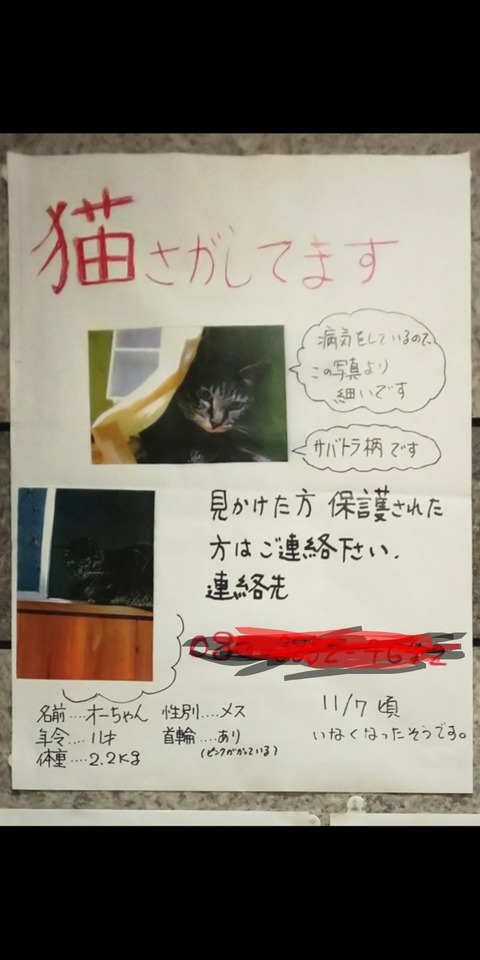 猫さがしてます
病気をしているので、
この写真より
細いです
サバトラ柄です
見かけた方 保護された
方はご連絡下さい.
連絡先
名前....オーちゃん
年令....11才
体重....2.2kg
性別....メス
首輪....あり
11/7頃
いなくなったそうです。